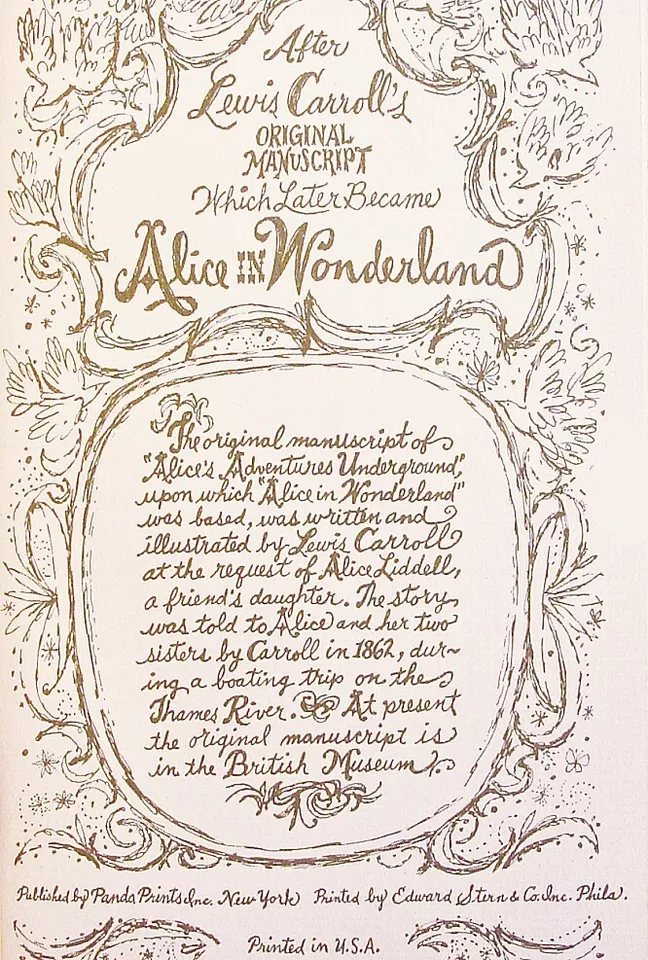 After
Lewis Carroll's
ORIGINAL
MANUSCRIPT
Which Later Became
Alice IN Wonderland
The original manuscript of
"Alice's Adventures Underground,"
upon which "Alice in Wonderland"
was based, was written and
illustrated by Lewis Carroll
at the request of Alice Liddell,
a friend's daughter. The story
was told to Alice and her two
sisters by Carroll in 1862, dur-
ing a boating trip on the
Thames River. At present
the original manuscript is
in the British Museum.
Published by Panda Prints Inc. New York Printed by Edward Stern & Co. Inc. Phila.
Printed in U.S.A.